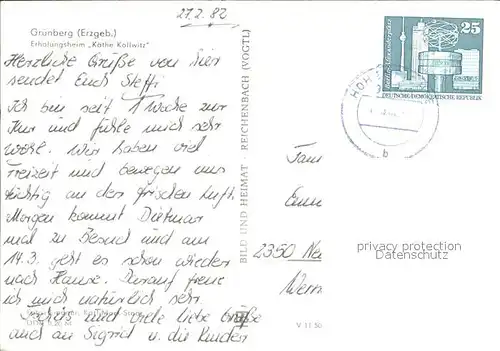 27.2.82
Grünberg (Erzgeb.)
Erholungsheim „Käthe Kollwitz"
Herzliche Grüße von hier
sendet Euch Steffi
Ich bin seit 1 Woche zur
Kur und fühle mich sehr
wohl. Wir haben viel
Freizeit und bewegen uns
tüchtig an der frischen Luft.
Morgen kommt Dietmar
mal zu Besuch und am
14.3. geht es schon wieder
nach Hause. Darauf freue
ich mich natürlich sehr.
und viele liebe Grüße
auch an Sigrid u. die Kinder
BILD UND HEIMAT REICHENBACH (VOGTL)
V 11 50
25
DEUTSCHE DEMOKRATISCHE REPUBLIK
HOH
b
Fam
2350 Neu
Wern
privacy protection
Datenschutz